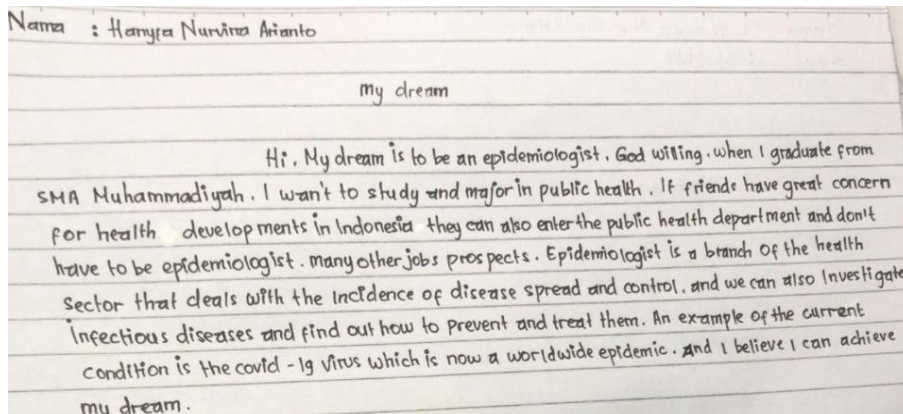 Nama : Hanyca Nurvina Arianto
my dream
Hi, My dream is to be an epidemiologist. God willing. when I graduate from
SMA Muhammadiyah. I wan't to study and major in public health. If friends have great concern
for health developments in Indonesia they can also enter the public health department and don't
have to be epidemiologist. many other jobs prospects. Epidemiologist is a branch of the health
sector that deals with the Incidence of disease spread and control. and we can also Investigate
Infectious diseases and find out how to prevent and treat them. An example of the current
condition is the covid -19 virus which is now a worldwide epidemic. And I believe I can achieve
my dream.